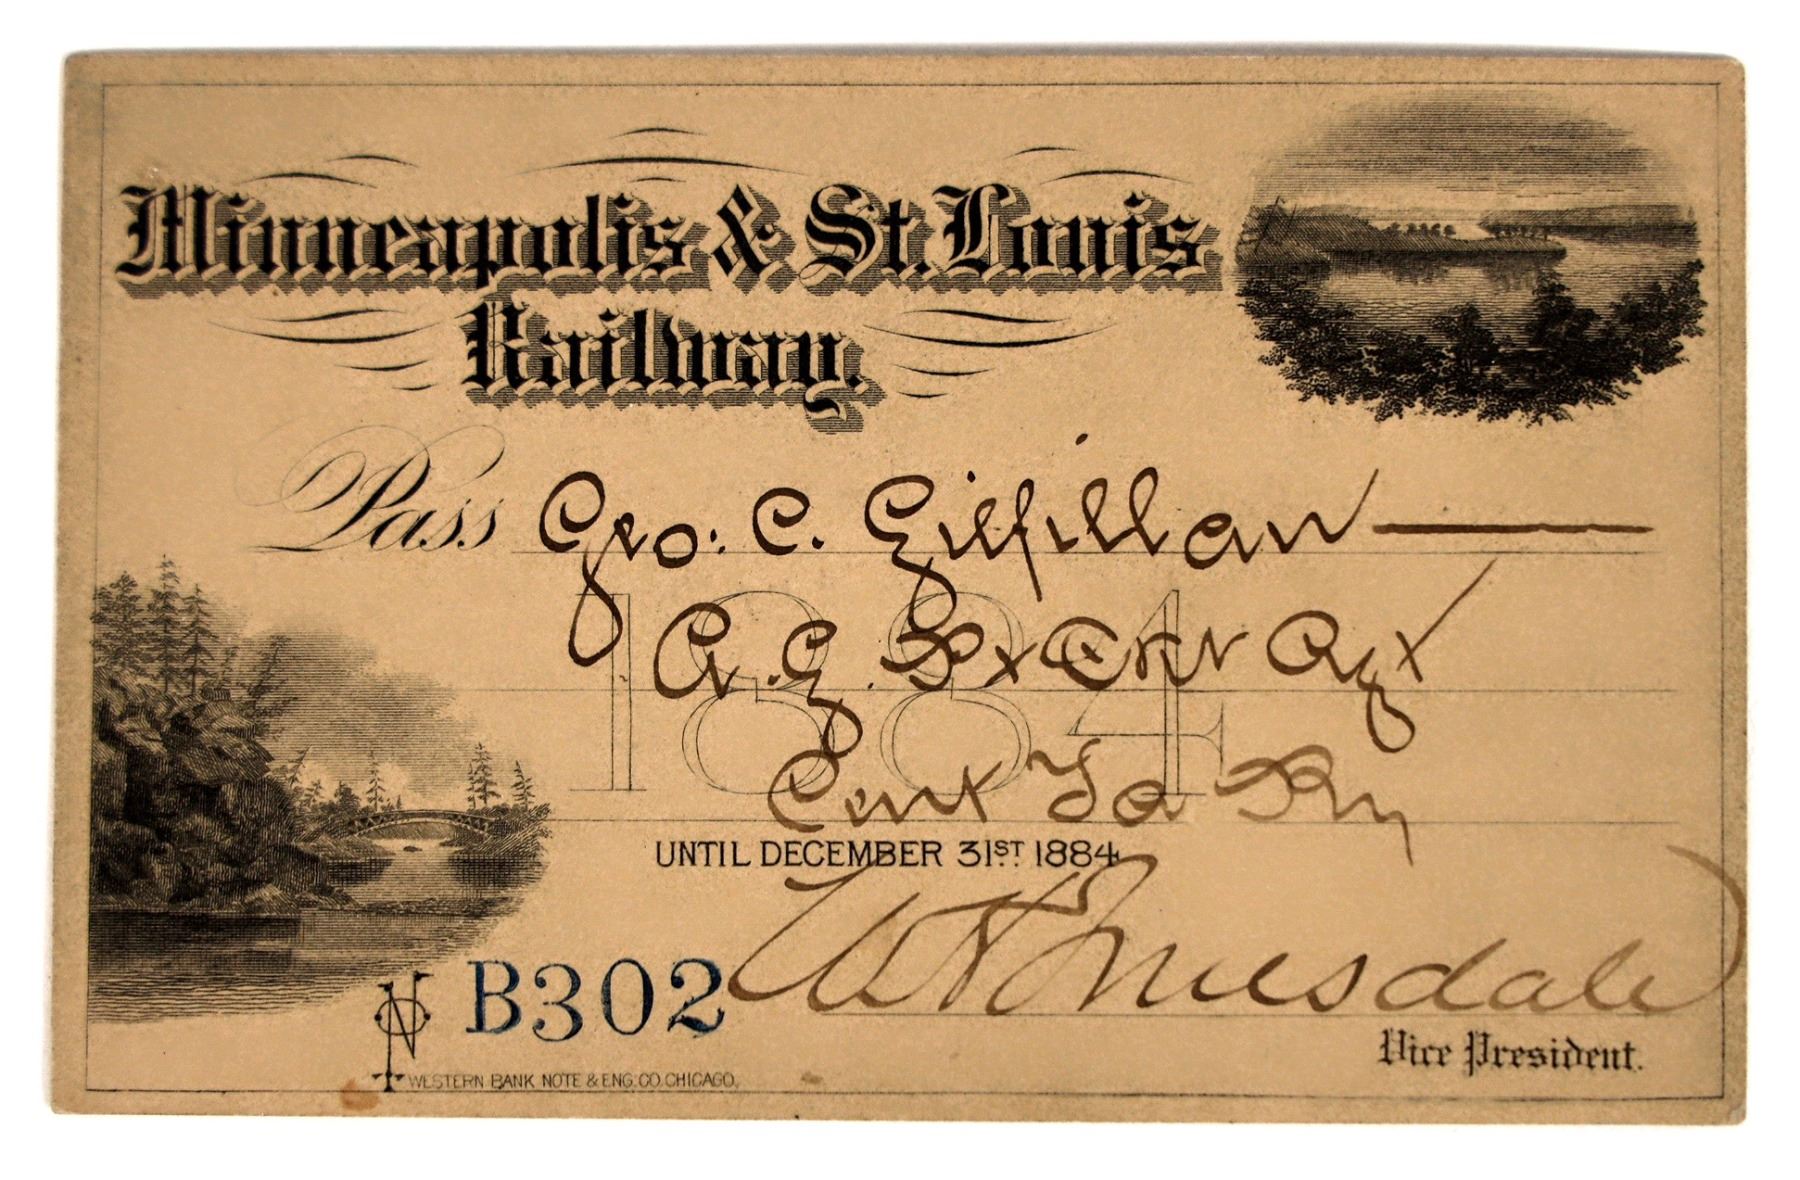 Minneapolis & St. Louis
Railway.
Pass Geo: C. Gilfillan
1884
A. G. Agt
Cent Ia Ry
UNTIL DECEMBER 31ST 1884
W H Truesdale
Vice President.
No B302
WESTERN BANK NOTE & ENG. CO. CHICAGO.